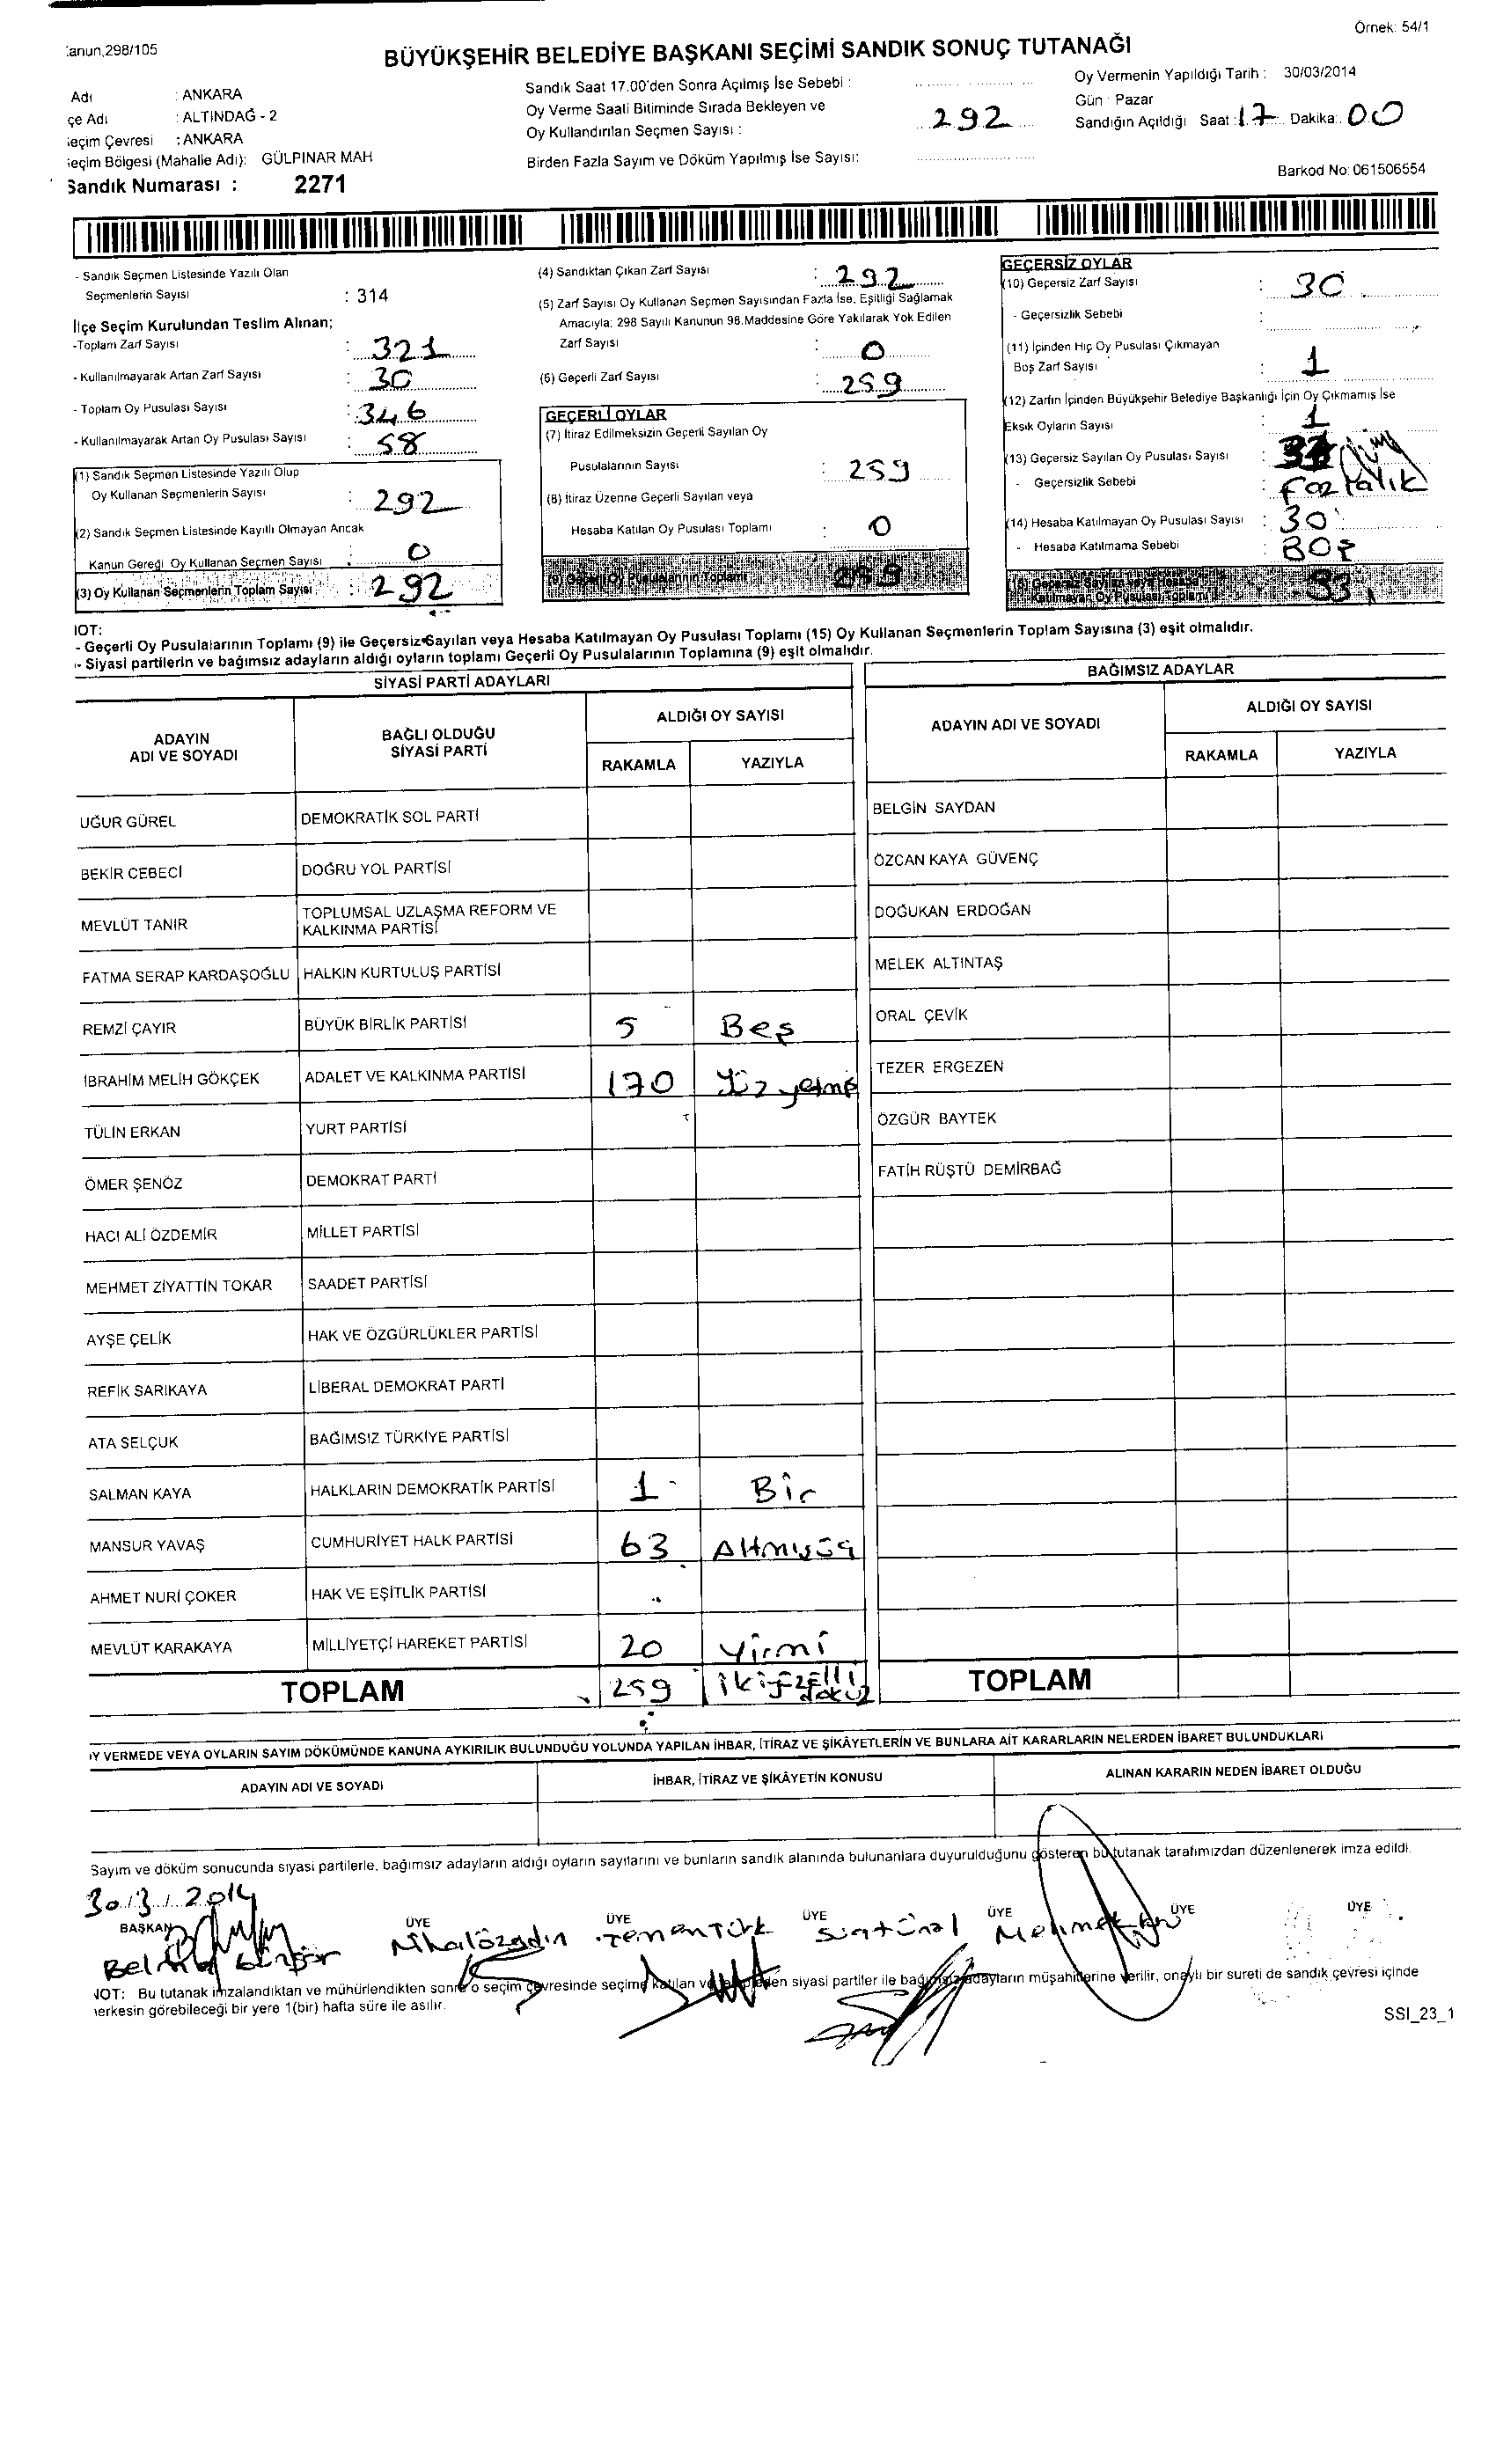 Örnek: 54/1
anun,298/105
BÜYÜKŞEHİR BELEDİYE BAŞKANI SEÇİMİ SANDIK SONUÇ TUTANAĞI
Adı : ANKARA
çe Adı : ALTINDAĞ - 2
eçim Çevresi : ANKARA
eçim Bölgesi (Mahalle Adı): GÜLPINAR MAH
Sandık Numarası : 2271
Sandık Saat 17.00'den Sonra Açılmış İse Sebebi :
Oy Verme Saati Bitiminde Sırada Bekleyen ve
Oy Kullandırılan Seçmen Sayısı : 292
Birden Fazla Sayım ve Döküm Yapılmış İse Sayısı:
Oy Vermenin Yapıldığı Tarih : 30/03/2014
Gün : Pazar
Sandığın Açıldığı Saat : 17 Dakika: 00
Barkod No: 061506554
- Sandık Seçmen Listesinde Yazılı Olan
Seçmenlerin Sayısı : 314
İlçe Seçim Kurulundan Teslim Alınan;
-Toplam Zarf Sayısı : 321
- Kullanılmayarak Artan Zarf Sayısı : 30
- Toplam Oy Pusulası Sayısı : 346
- Kullanılmayarak Artan Oy Pusulası Sayısı : 58
(1) Sandık Seçmen Listesinde Yazılı Olup
Oy Kullanan Seçmenlerin Sayısı : 292
(2) Sandık Seçmen Listesinde Kayıtlı Olmayan Ancak
Kanun Gereği Oy Kullanan Seçmen Sayısı : 0
(3) Oy Kullanan Seçmenlerin Toplam Sayısı : 292
(4) Sandıktan Çıkan Zarf Sayısı : 292
(5) Zarf Sayısı Oy Kullanan Seçmen Sayısından Fazla İse, Eşitliği Sağlamak
Amacıyla; 298 Sayılı Kanunun 98.Maddesine Göre Yakılarak Yok Edilen
Zarf Sayısı : 0
(6) Geçerli Zarf Sayısı : 259
GEÇERLİ OYLAR
(7) İtiraz Edilmeksizin Geçerli Sayılan Oy
Pusulalarının Sayısı : 259
(8) İtiraz Üzerine Geçerli Sayılan veya
Hesaba Katılan Oy Pusulası Toplamı : 0
(9) Geçerli Oy Pusulalarının Toplamı 259
GEÇERSİZ OYLAR
(10) Geçersiz Zarf Sayısı : 30
- Geçersizlik Sebebi :
(11) İçinden Hiç Oy Pusulası Çıkmayan
Boş Zarf Sayısı : 1
(12) Zarfın İçinden Büyükşehir Belediye Başkanlığı İçin Oy Çıkmamış İse
Eksik Oyların Sayısı 1
(13) Geçersiz Sayılan Oy Pusulası Sayısı :
- Geçersizlik Sebebi : Fazlalık
(14) Hesaba Katılmayan Oy Pusulası Sayısı : 30
- Hesaba Katılmama Sebebi : BOŞ
(15) Geçersiz Sayılan veya Hesaba
Katılmayan Oy Pusulası Toplamı 33
NOT:
- Geçerli Oy Pusulalarının Toplamı (9) ile Geçersiz Sayılan veya Hesaba Katılmayan Oy Pusulası Toplamı (15) Oy Kullanan Seçmenlerin Toplam Sayısına (3) eşit olmalıdır.
- Siyasi partilerin ve bağımsız adayların aldığı oyların toplamı Geçerli Oy Pusulalarının Toplamına (9) eşit olmalıdır.
SİYASİ PARTİ ADAYLARI
ADAYIN ADI VE SOYADI BAĞLI OLDUĞU SİYASİ PARTİ ALDIĞI OY SAYISI
RAKAMLA YAZIYLA
UĞUR GÜREL DEMOKRATİK SOL PARTİ
BEKİR CEBECİ DOĞRU YOL PARTİSİ
MEVLÜT TANIR TOPLUMSAL UZLAŞMA REFORM VE KALKINMA PARTİSİ
FATMA SERAP KARDAŞOĞLU HALKIN KURTULUŞ PARTİSİ
REMZİ ÇAYIR BÜYÜK BİRLİK PARTİSİ 5 Beş
İBRAHİM MELİH GÖKÇEK ADALET VE KALKINMA PARTİSİ 170 Yüzyetmiş
TÜLİN ERKAN YURT PARTİSİ
ÖMER ŞENÖZ DEMOKRAT PARTİ
HACI ALİ ÖZDEMİR MİLLET PARTİSİ
MEHMET ZİYATTİN TOKAR SAADET PARTİSİ
AYŞE ÇELİK HAK VE ÖZGÜRLÜKLER PARTİSİ
REFİK SARIKAYA LİBERAL DEMOKRAT PARTİ
ATA SELÇUK BAĞIMSIZ TÜRKİYE PARTİSİ
SALMAN KAYA HALKLARIN DEMOKRATİK PARTİSİ 1 Bir
MANSUR YAVAŞ CUMHURİYET HALK PARTİSİ 63 Altmışüç
AHMET NURİ ÇOKER HAK VE EŞİTLİK PARTİSİ
MEVLÜT KARAKAYA MİLLİYETÇİ HAREKET PARTİSİ 20 Yirmi
TOPLAM 259 ikiyüzelli dokuz
BAĞIMSIZ ADAYLAR
ADAYIN ADI VE SOYADI ALDIĞI OY SAYISI
RAKAMLA YAZIYLA
BELGİN SAYDAN
ÖZCAN KAYA GÜVENÇ
DOĞUKAN ERDOĞAN
MELEK ALTINTAŞ
ORAL ÇEVİK
TEZER ERGEZEN
ÖZGÜR BAYTEK
FATİH RÜŞTÜ DEMİRBAĞ
TOPLAM
Y VERMEDE VEYA OYLARIN SAYIM DÖKÜMÜNDE KANUNA AYKIRILIK BULUNDUĞU YOLUNDA YAPILAN İHBAR, İTİRAZ VE ŞİKÂYETLERİN VE BUNLARA AİT KARARLARIN NELERDEN İBARET BULUNDUKLARI
ADAYIN ADI VE SOYADI İHBAR, İTİRAZ VE ŞİKÂYETİN KONUSU ALINAN KARARIN NEDEN İBARET OLDUĞU
Sayım ve döküm sonucunda siyasi partilerle, bağımsız adayların aldığı oyların sayılarını ve bunların sandık alanında bulunanlara duyurulduğunu gösteren bu tutanak tarafımızdan düzenlenerek imza edildi.
30/3/2014
BAŞKAN ÜYE ÜYE ÜYE ÜYE ÜYE ÜYE
Mehmet
NOT: Bu tutanak imzalandıktan ve mühürlendikten sonra o seçim çevresinde seçime katılan ve siyasi partiler ile bağımsız adayların müşahitlerine verilir, onaylı bir sureti de sandık çevresi içinde
herkesin görebileceği bir yere 1(bir) hafta süre ile asılır.
SSI_23_1